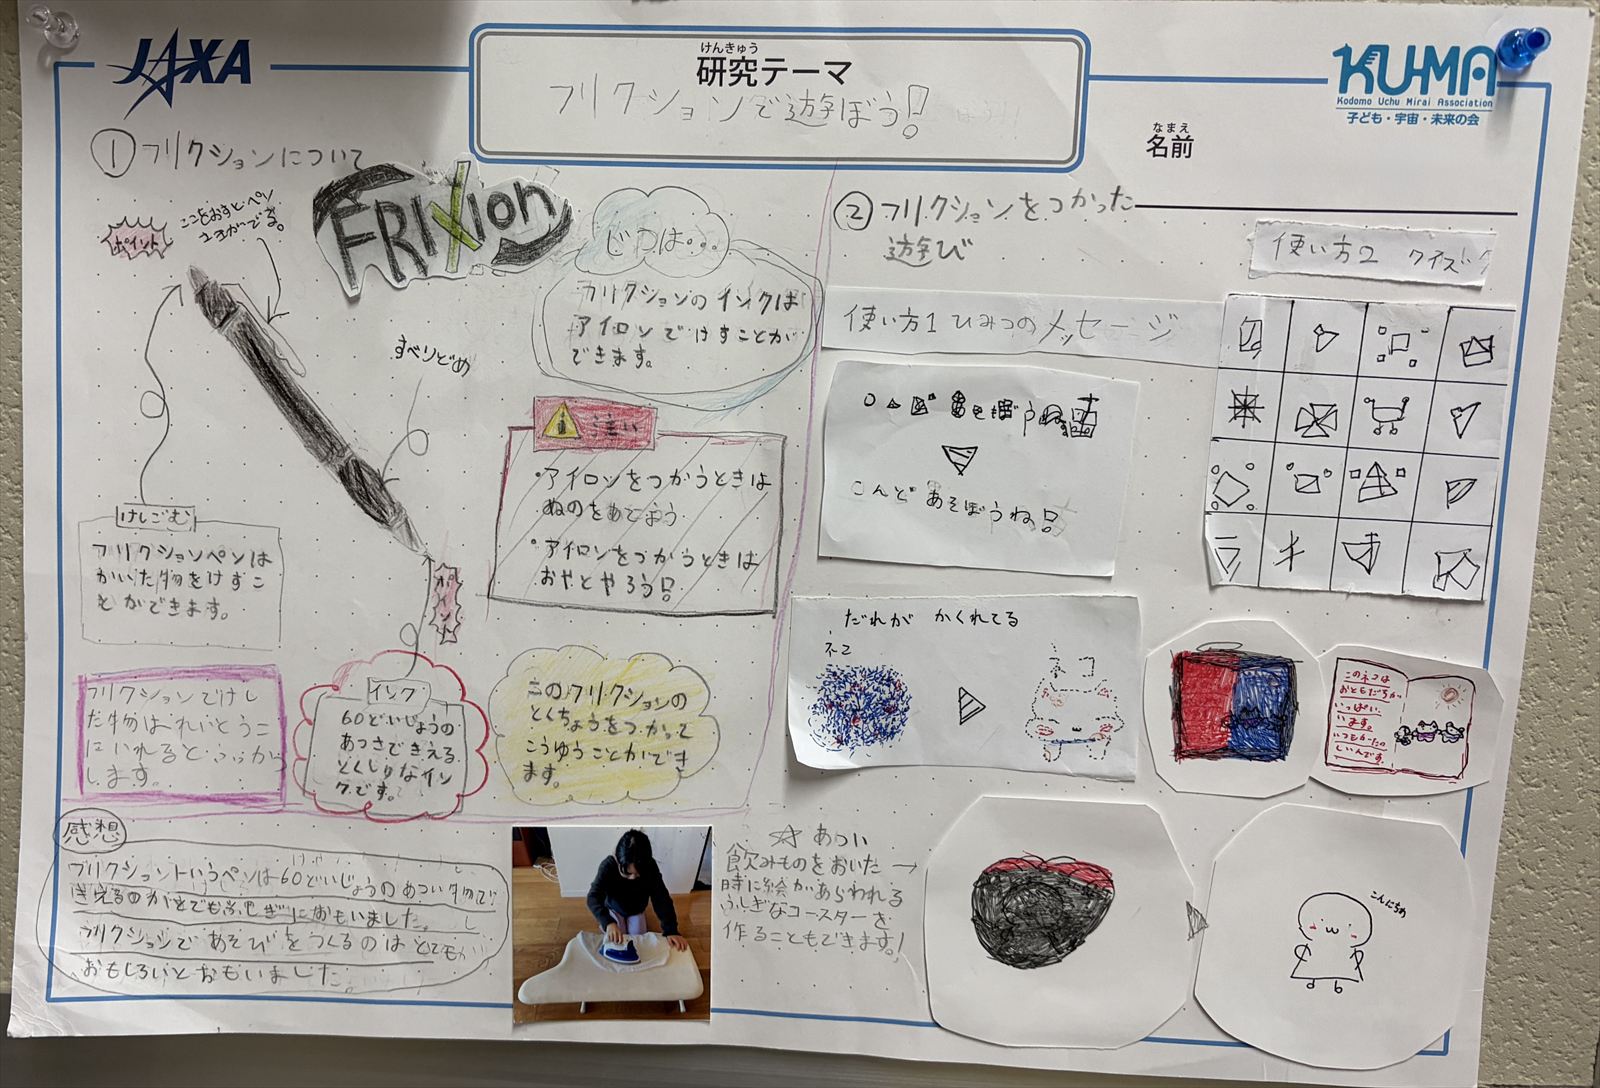 JAXA
けんきゅう
研究テーマ
フリクションで遊ぼう!
KU-MA
Kodomo Uchu Mirai Association
子ども・宇宙・未来の会
なまえ
名前
① フリクションについて
ポイント
ここをおすとペン
FRIXION
すべりどめ
けしごむ
フリクションペンは
かいた物をけすこ
とができます。
ポイント
じつは・・・
フリクションのインクは
アイロンでけすことが
できます。
注い
・アイロンをつかうときは
ぬのをあてよう
・アイロンをつかうときは
おやとやろう!
フリクションでけし
た物はれいとうこ
にいれるとふっかつ
します。
インク
60どいじょうの
あつさできえる
とくしゅなイン
クです。
このフリクションの
とくちょうをつかって
こうゆうことができ
ます。
感想
フリクショントいうペンは60どいじょうのあつい物で
きえるのがとてもふしぎにおもいました。
フリクションであそびをつくるのはとても
おもしろいとおもいました。
② フリクションをつかった
遊び
使い方1 ひみつのメッセージ
こんど あそぼうね!
だれが かくれてる
ネコ
使い方2
このネコは
おともだちが
いっぱい
います。
いつもたの
しいんです。
☆ あつい
飲みものをおいた →
時に絵があらわれる
ふしぎなコースターを
作ることもできます!
こんにちわ